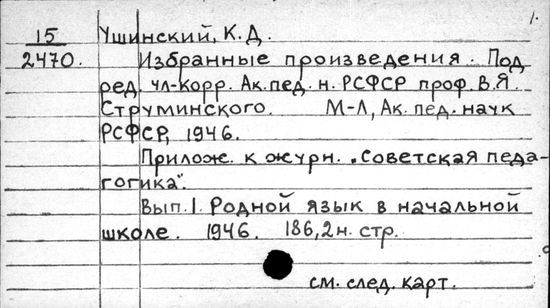 1.
15 Ушинский, К.Д.
2470. Избранные произведения. Под
ред. чл-корр. Ак.пед.н. РСФСР проф. В.Я.
Струминского. М-Л, Ак. пед. наук
РСФСР, 1946.
Прилож. к журн. "Советская педа-
гогика".
Вып.1. Родной язык в начальной
школе. 1946. 186,2н. стр.
см. след. карт.